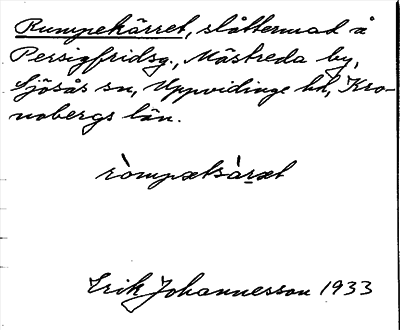 Rumpekärret, slåttermad å
Persigfridsg., Mästreda by,
Sjösås sn, Uppvidinge hd, Kro-
nobergs län.
ròmpætsàræt
Erik Johannesson 1933